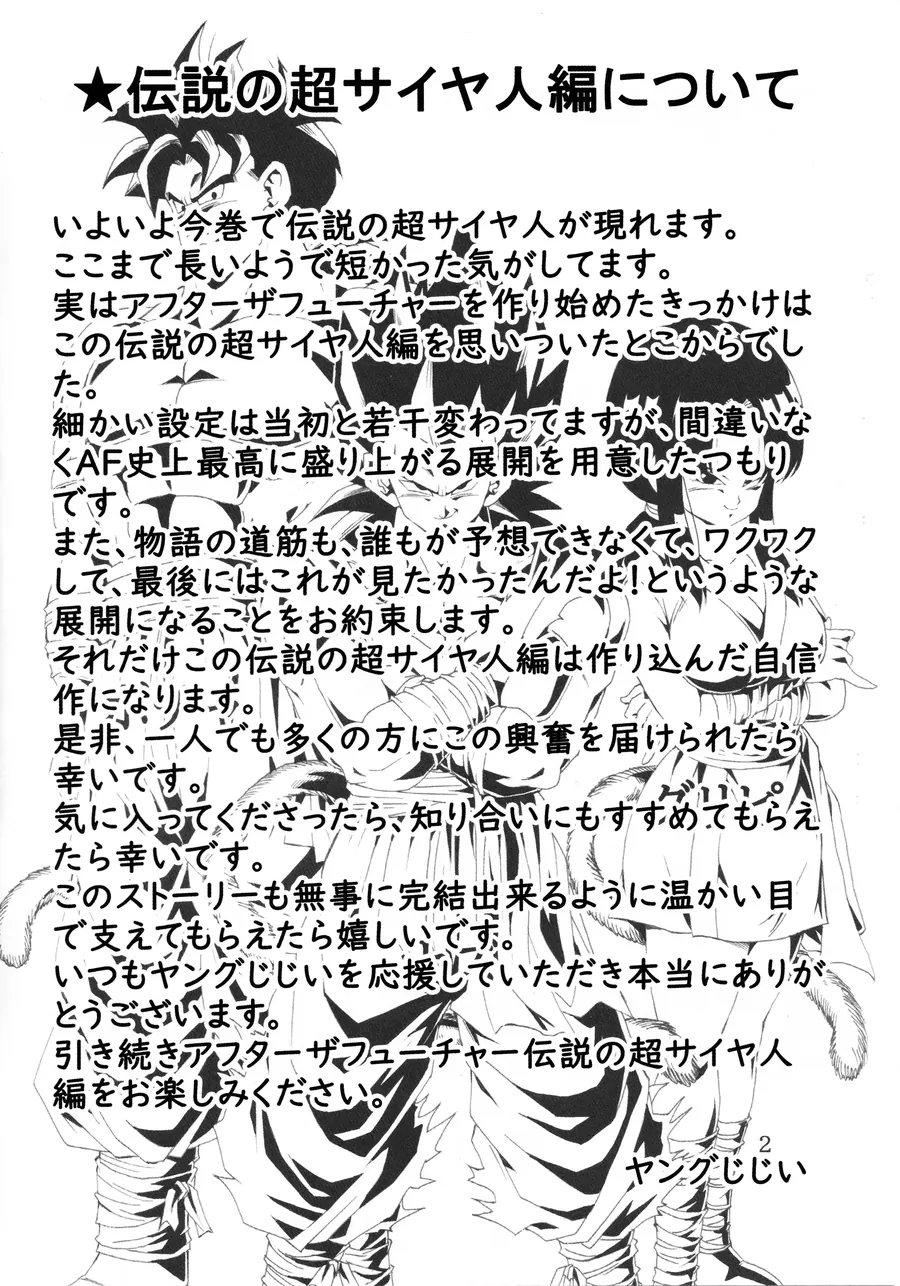 ★伝説の超サイヤ人編について
いよいよ今巻で伝説の超サイヤ人が現れます。
ここまで長いようで短かった気がしてます。
実はアフターザフューチャーを作り始めたきっかけは
この伝説の超サイヤ人編を思いついたとこからでし
た。
細かい設定は当初と若干変わってますが、間違いな
くAF史上最高に盛り上がる展開を用意したつもり
です。
また、物語の道筋も、誰もが予想できなくて、ワクワク
して、最後にはこれが見たかったんだよ！というような
展開になることをお約束します。
それだけこの伝説の超サイヤ人編は作り込んだ自信
作になります。
是非、一人でも多くの方にこの興奮を届けられたら
幸いです。
気に入ってくださったら、知り合いにもすすめてもらえ
たら幸いです。
このストーリーも無事に完結出来るように温かい目
で支えてもらえたら嬉しいです。
いつもヤングじじいを応援していただき本当にありが
とうございます。
引き続きアフターザフューチャー伝説の超サイヤ人
編をお楽しみください。
2
ヤングじじい